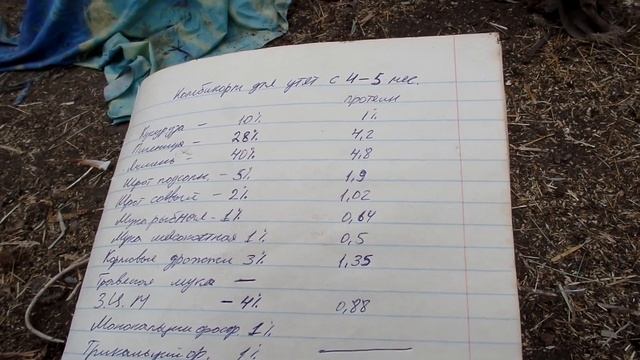 Комбикорм для утят с 4-5 мес.
протеин
Кукуруза - 10% 1%
Пшеница - 28% 4,2
Ячмень - 40% 4,8
Шрот подсолн. - 5% 1,9
Шрот соевый - 2% 1,02
Мука рыбная - 1% 0,64
Мука мясокостная 1% 0,5
Кормовые дрожжи 3% 1,35
Травяная мука -
З.Ц.М - 4% 0,88
Монокальций фосф 1%
Трикальций ф. 1%